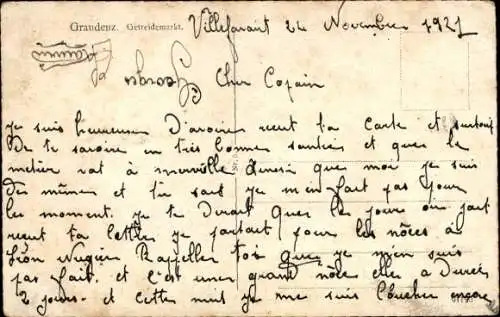 Graudenz. Getreidemarkt.
Villefavard 24 Novembre 1921
Georges
Cher Copain
je suis heureuse D'avoire recut ta carte et surtout
De te savoire en tres bonne santées et que le
métier vat à merveille ainsi que moi je suis
Des mûmes et tu sait je m'en fait pas pour
les moment. je te Dirait que le jour ou jait
recut ta lettre je partait pour les nôces à
Léon Rappelles toi que je m'en suis
pas fait. et c'est une grand nôce elle a Durée
2 jours. et cette nuit je me suis Coucher encore